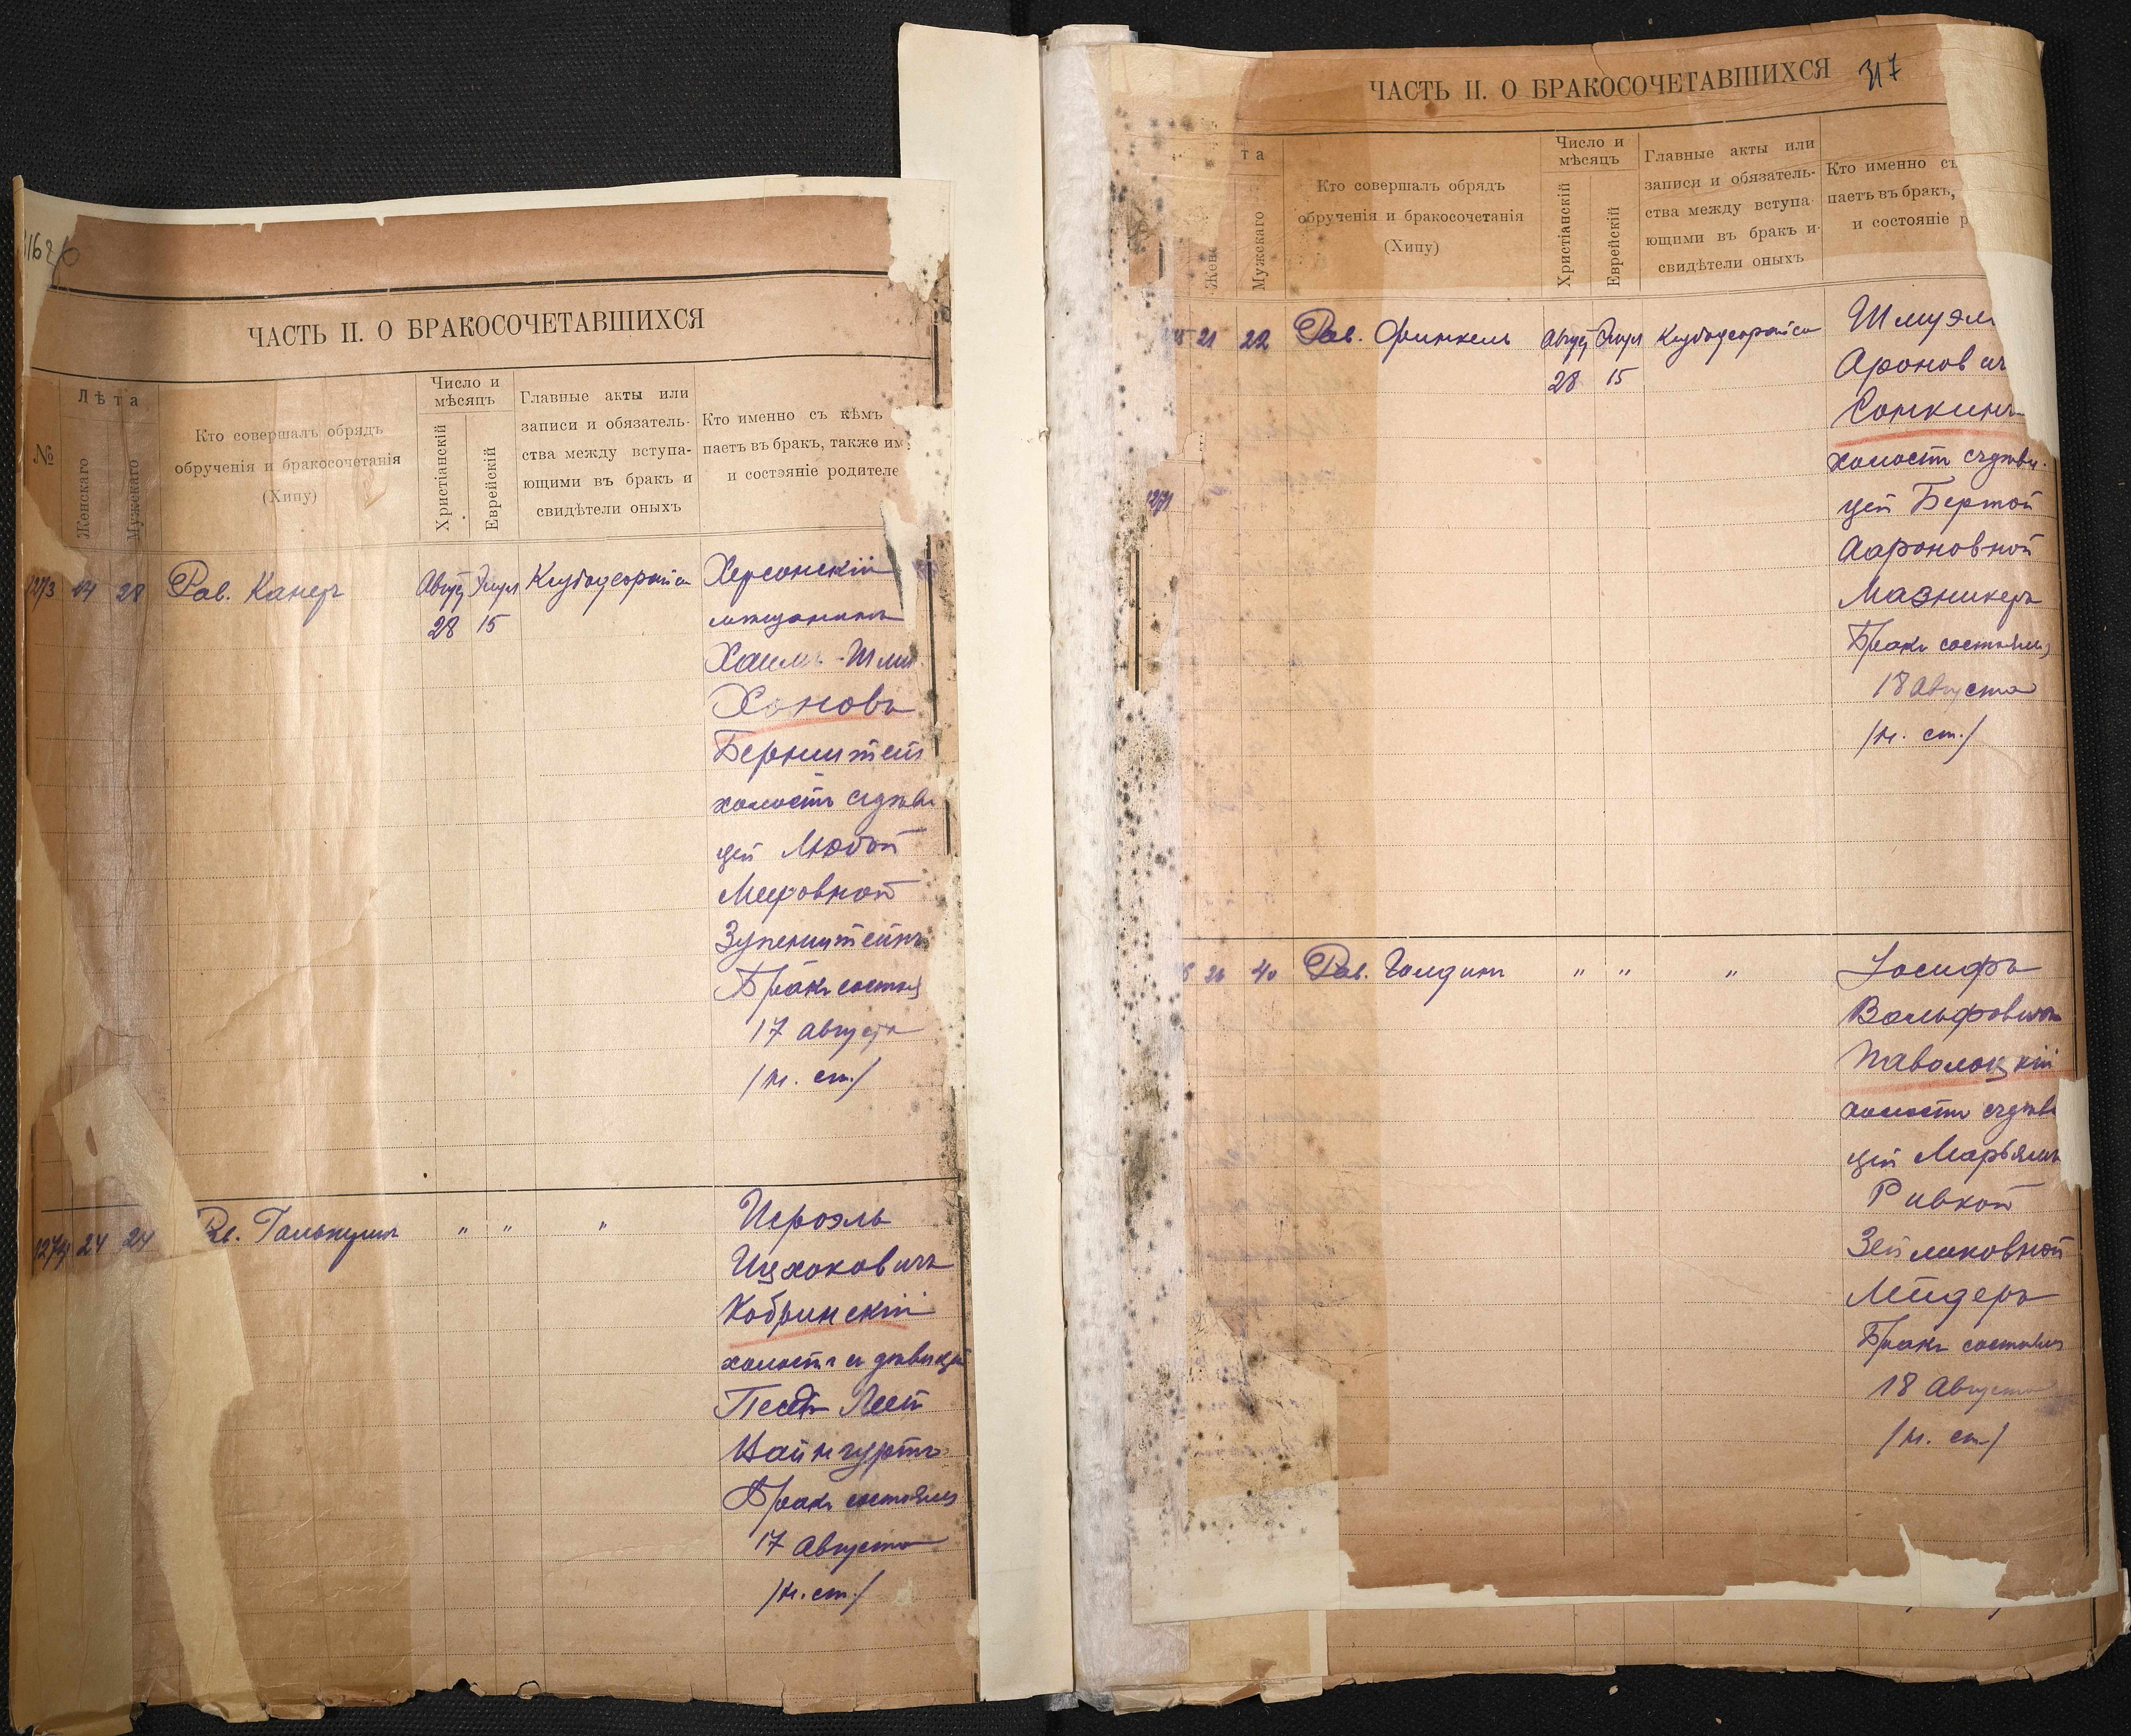 ЧАСТЬ II. О БРАКОСОЧЕТАВШИХСЯ
№
Лѣта
Женскаго
Мужскаго
Кто совершалъ обрядъ
обрученія и бракосочетанія
(Хипу)
Число и
мѣсяцъ
Христіанскій
Еврейскій
Главные акты или
записи и обязатель-
ства между вступа-
ющими въ бракъ и
свидѣтели оныхъ
Кто именно съ кѣмъ
паетъ въ бракъ, также им
и состояніе родителе
28 Рав. Канеръ Август Элул
28 15
Херсонскій
мѣщанинъ
Хаимъ-Шм
Хоновъ
Бернштейн
холостъ съ дѣви
цей Любой
Мееровной
Зупенштейнъ
Бракъ состоя
17 Августа
/н. ст./
24 24 Галькутин " " "
Исроэль
Ицхоковичъ
Кобринскій
холостъ съ дѣвицей
Песей Леей
Вайнгуртъ
Бракъ состоялся
17 Августа
/н. ст./
ЧАСТЬ II. О БРАКОСОЧЕТАВШИХСЯ 317
та
Жен
Мужскаго
Кто совершалъ обрядъ
обрученія и бракосочетанія
(Хипу)
Число и
мѣсяцъ
Христіанскій
Еврейскій
Главные акты или
записи и обязатель-
ства между вступа-
ющими въ бракъ и
свидѣтели оныхъ
Кто именно съ
паетъ въ бракъ,
и состояніе р
21 22 Рав. Финкель Август Элул
28 15
Шмуэл
Аронович
Сонкинъ
холостъ съ дѣви-
цей Бертой
Аароновной
Мазникеръ
Бракъ состоялся
18 Августа
/н. ст./
40 Рав. Гольдинъ " " "
Іосифъ
Вольфовичъ
Паволоцкій
холостъ съ дѣви
цей Марьямъ
Ривкой
Зейликовной
Лейдеръ
Бракъ состоялся
18 Августа
/н. ст./